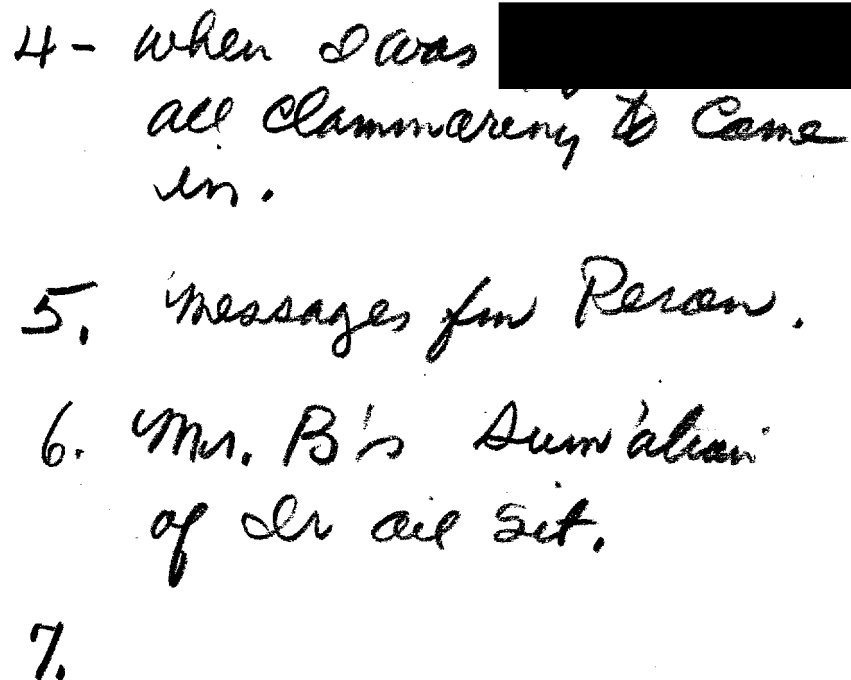 4- When I was
all clammareing to Come
in.
5. Messages fm Peron.
6. Mr. B's Sum'ation
of Ir oil Sit.
7.